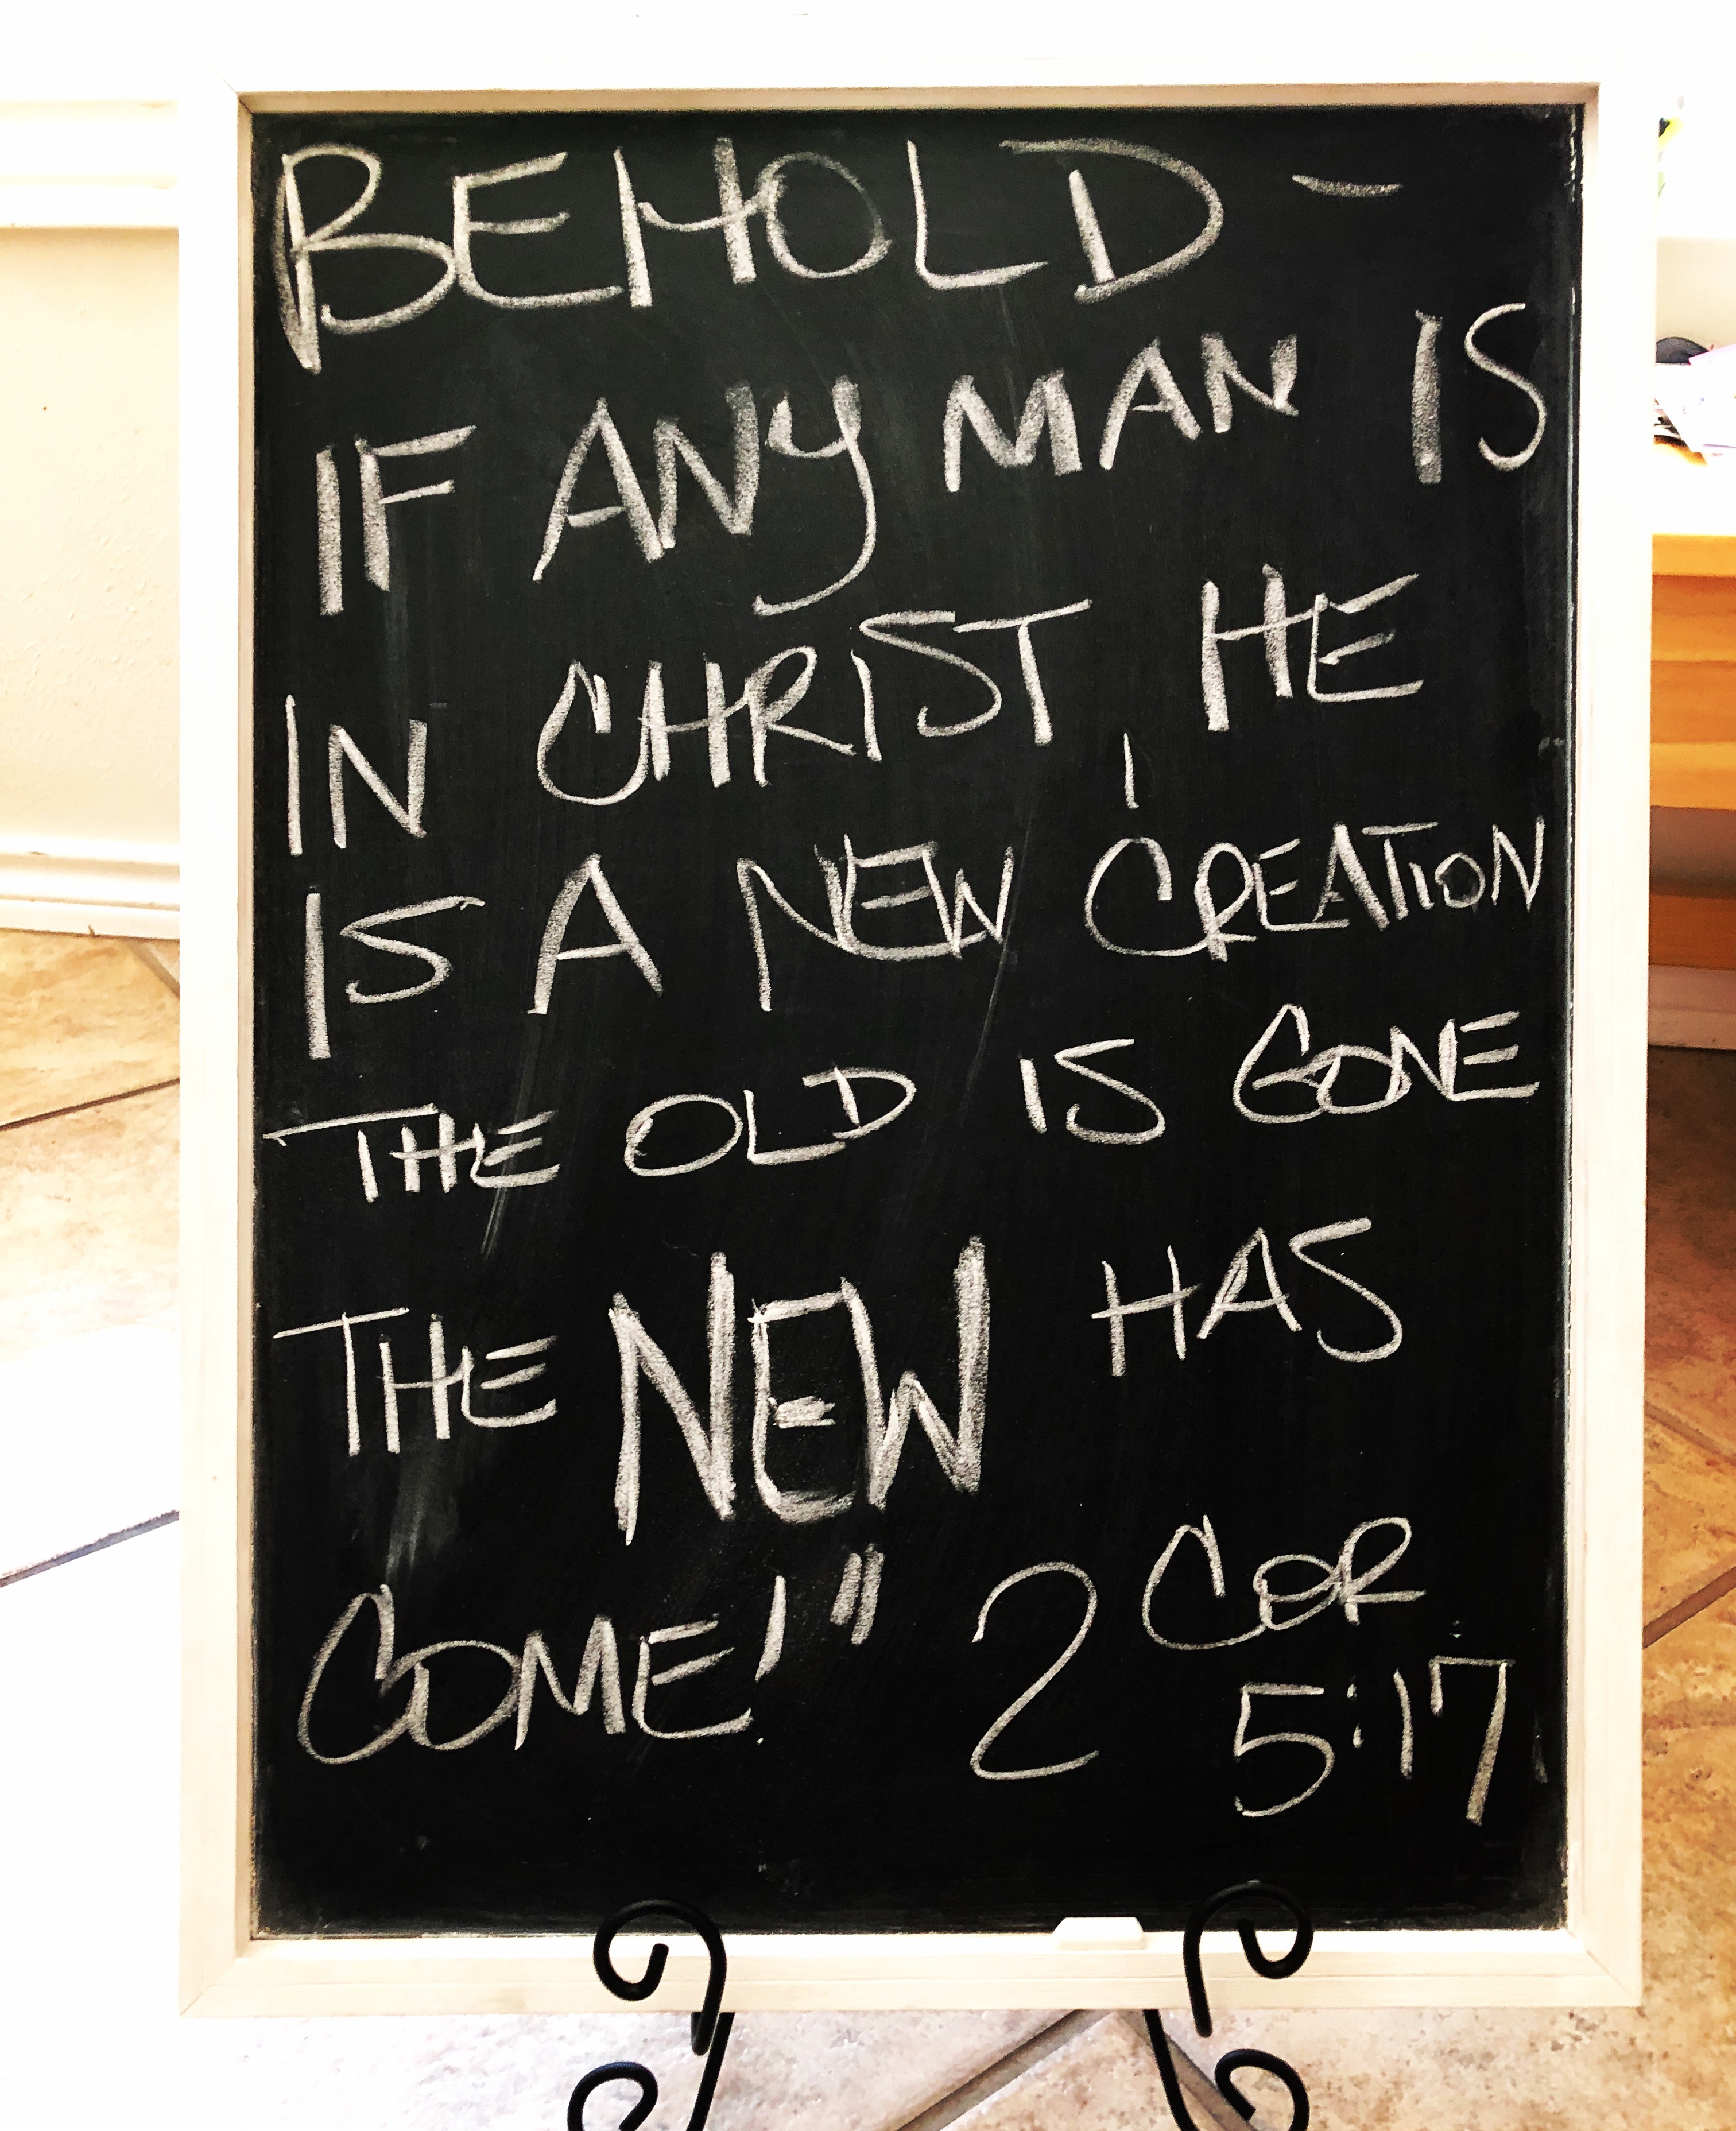 BEHOLD -
IF ANY MAN IS
IN CHRIST, HE
IS A NEW CREATION
THE OLD IS GONE
THE NEW HAS
COME!" 2 COR
5:17